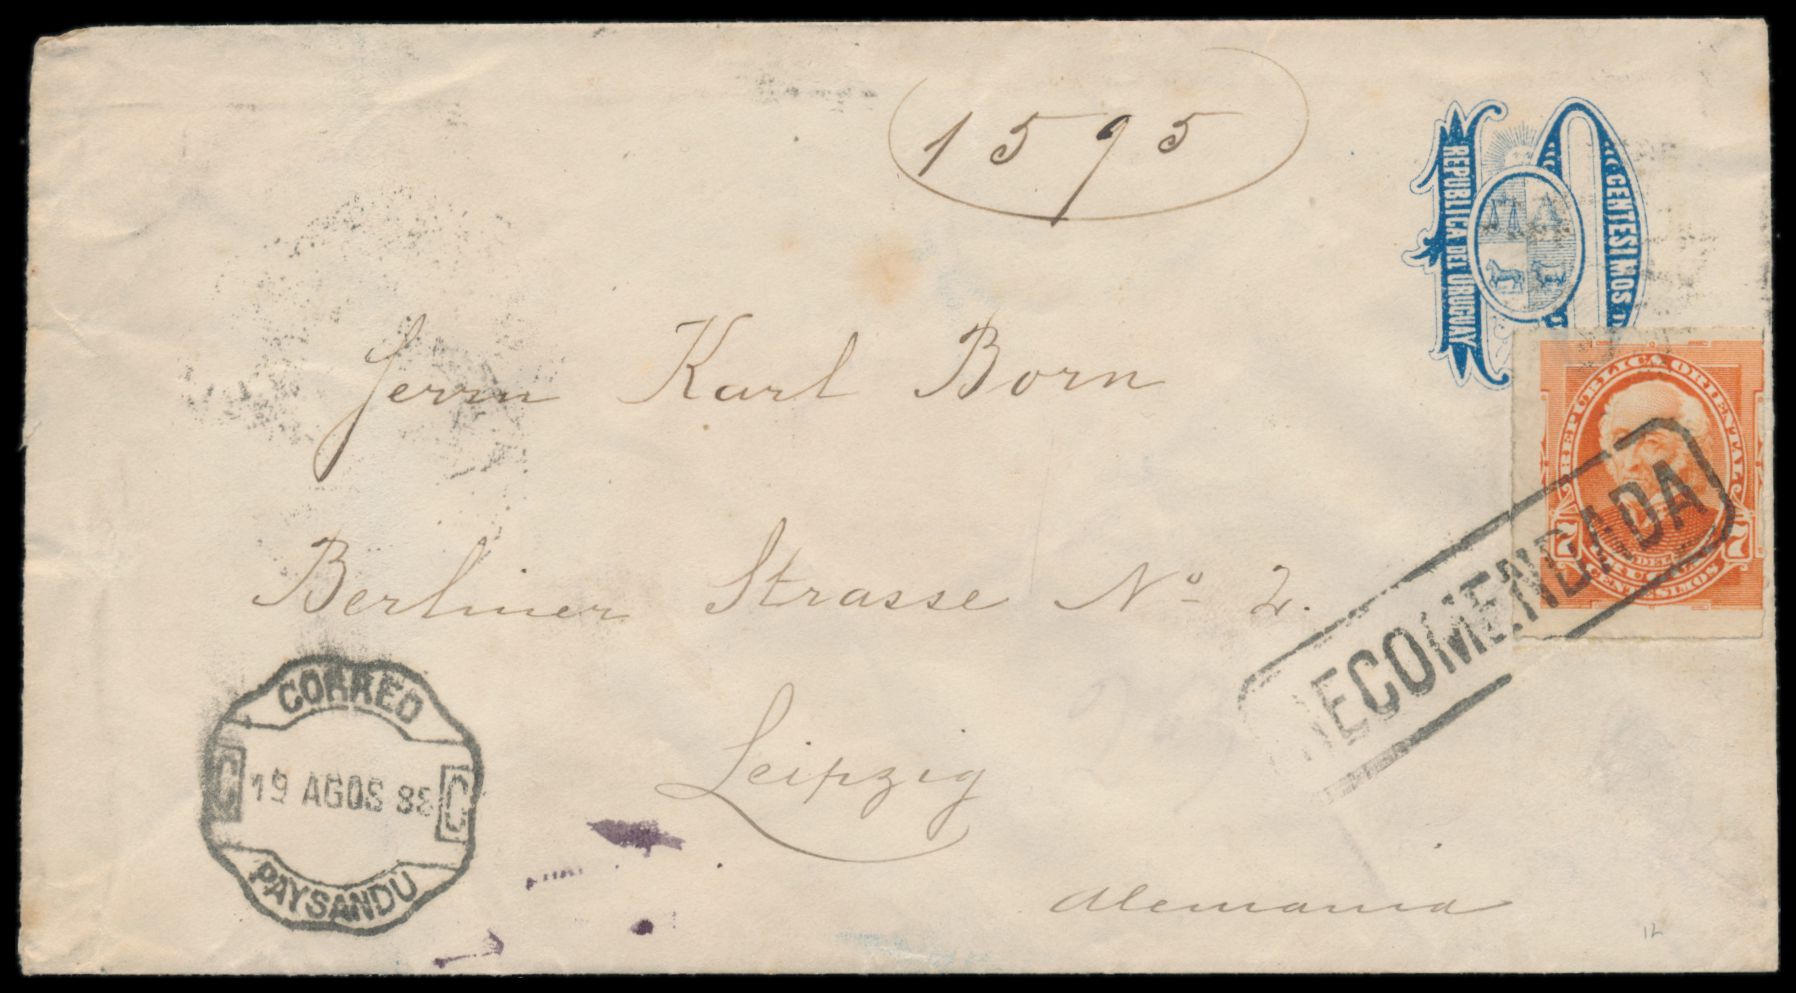 1595
10
CENTESIMOS
REPUBLICA DEL URUGUAY
REPUBLICA ORIENTAL
DEL URUGUAY
7 7
CENTESIMOS
RECOMENDADA
Herrn Karl Born
Berliner Strasse No 2.
Leipzig
Alemania
CORREO
C 19 AGOS 88 C
PAYSANDU
12